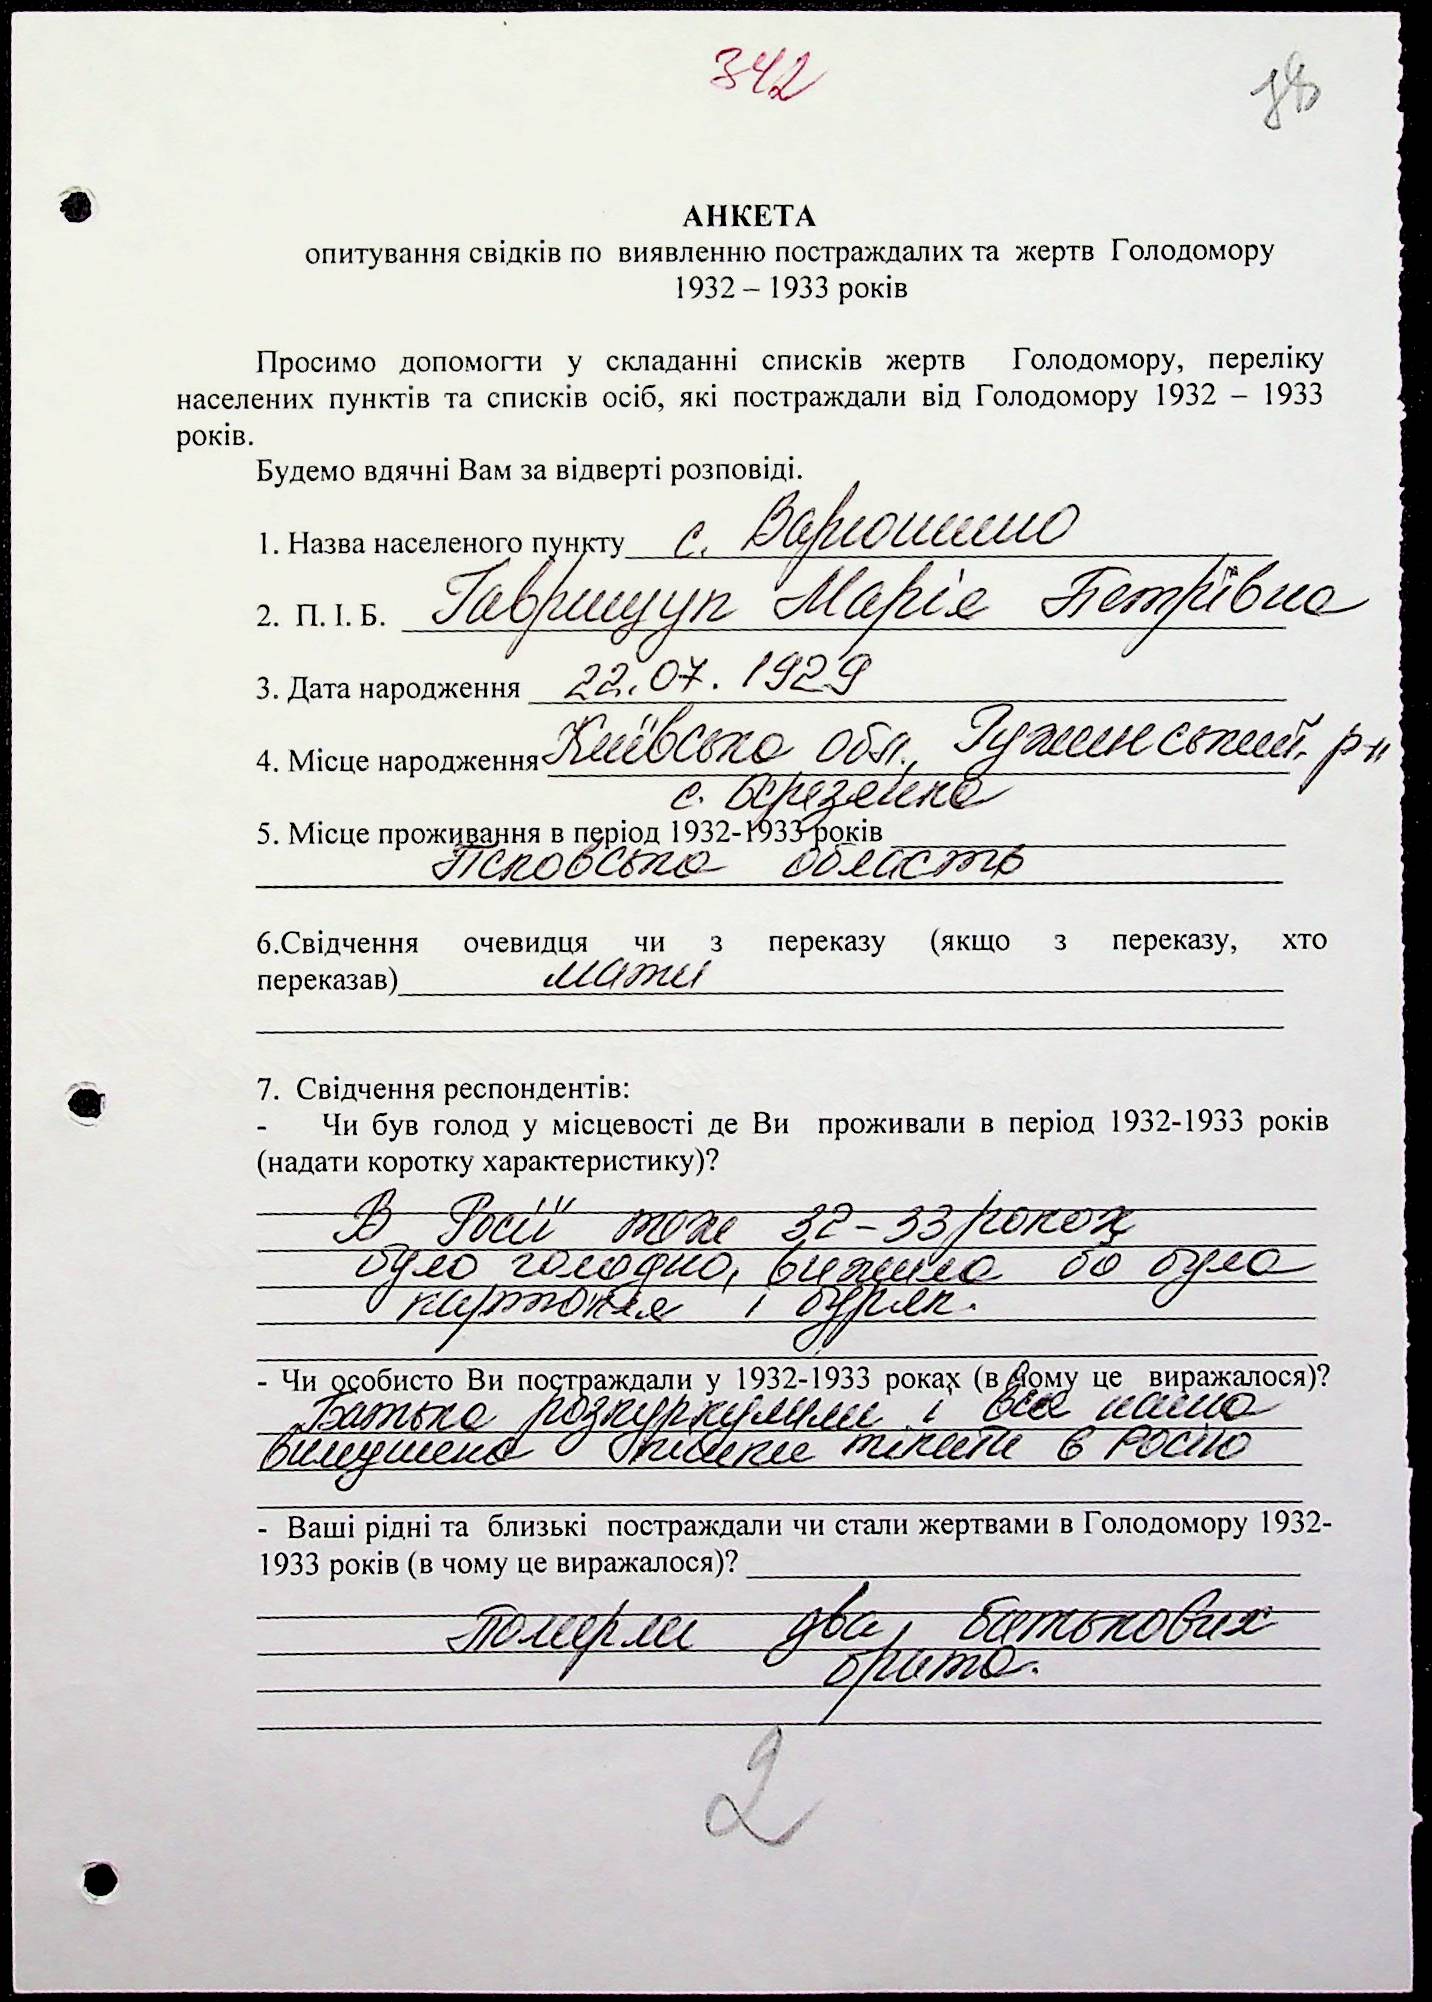 342
АНКЕТА
опитування свідків по виявленню постраждалих та жертв Голодомору
1932 – 1933 років
Просимо допомогти у складанні списків жертв Голодомору, переліку
населених пунктів та списків осіб, які постраждали від Голодомору 1932 – 1933
років.
Будемо вдячні Вам за відверті розповіді.
1. Назва населеного пункту с.
2. П. І. Б. Гаврищук Марія Петрівна
3. Дата народження 22.07.1929
4. Місце народження Київська обл., Ружинський р-н
с. Березянка
5. Місце проживання в період 1932-1933 років
Псковська область
6.Свідчення очевидця чи з переказу (якщо з переказу, хто
переказав) мати
7. Свідчення респондентів:
- Чи був голод у місцевості де Ви проживали в період 1932-1933 років
(надати коротку характеристику)?
В Росії тоже 32-33 роках
було голодно, вижила бо була
картопля і буряк.
- Чи особисто Ви постраждали у 1932-1933 роках (в чому це виражалося)?
Батька розкуркулили і
вимушена тікати в Росію
- Ваші рідні та близькі постраждали чи стали жертвами в Голодомору 1932-
1933 років (в чому це виражалося)?
Померли два батькових
брата.
2